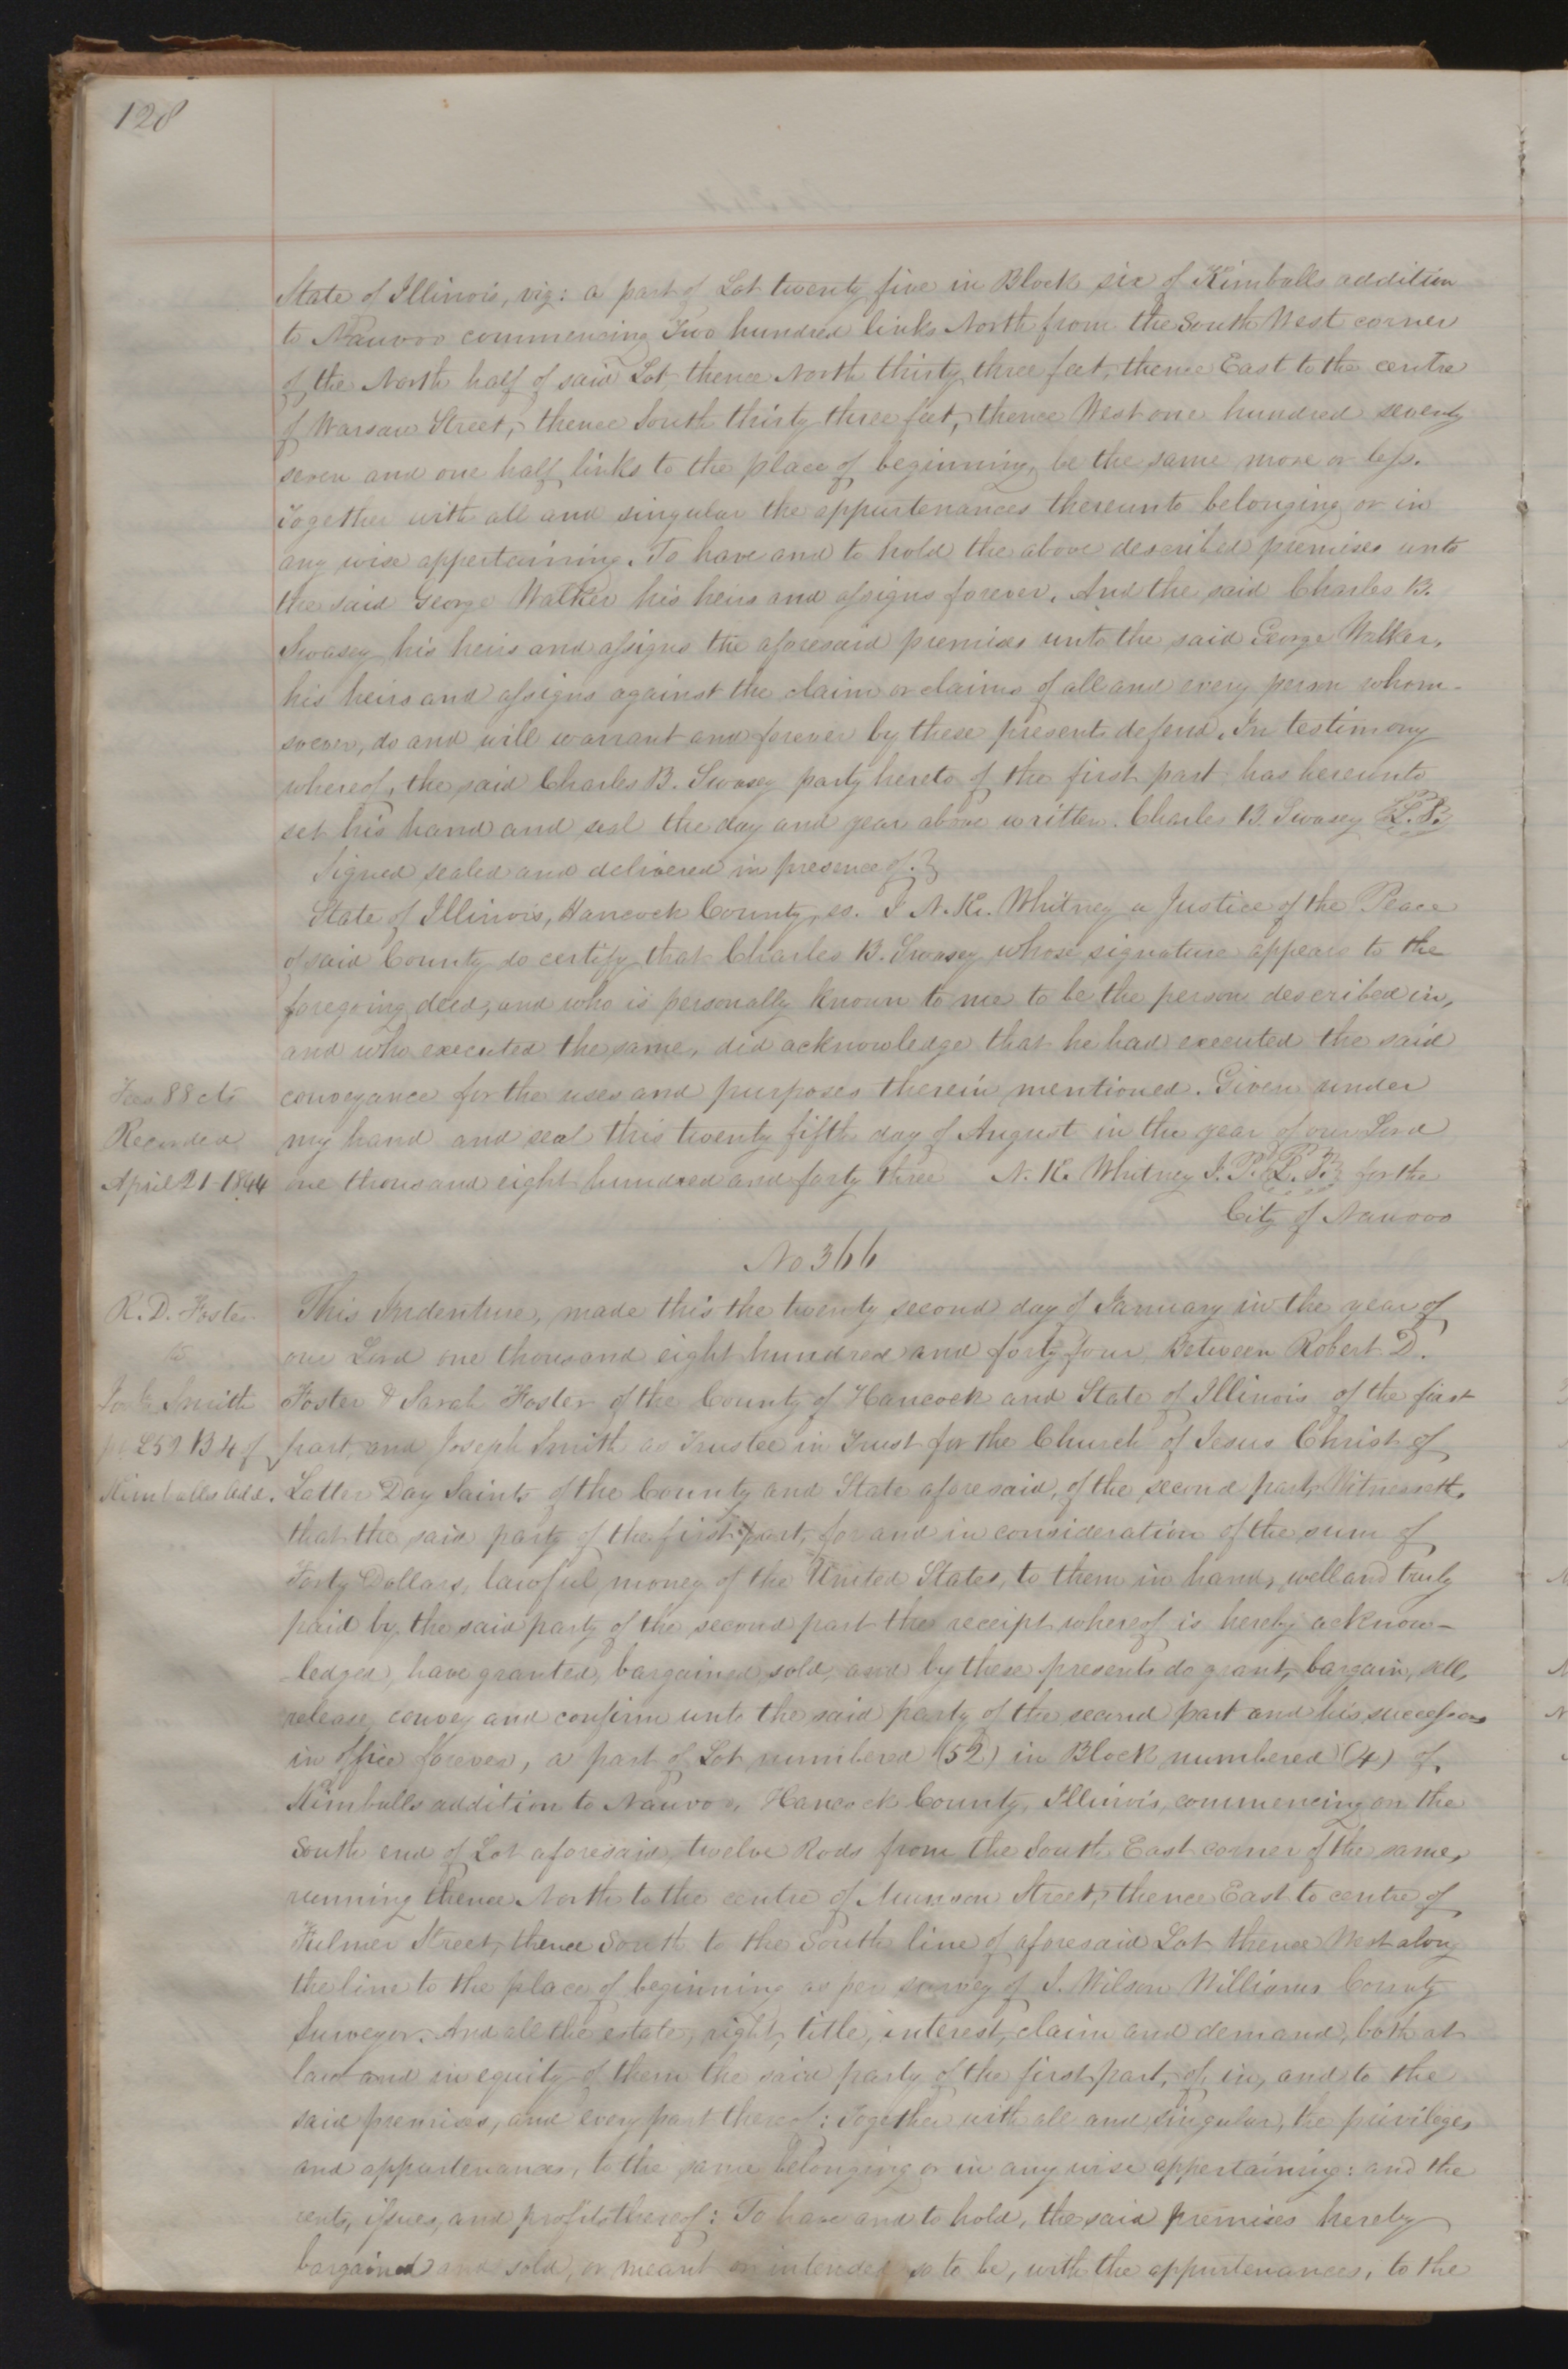 128
State of Illinois, viz: a part of Lot twenty five in Block six of Kimballs addition
to Nauvoo commencing Two hundred links North from the South West corner
of the North half of said Lot, thence North thirty three feet, thence East to the centre
of Warsaw Street, thence South thirty three feet, thence West one hundred seventy
seven and one half links to the place of beginning, be the same more or less.
Together with all and singular the appurtenances thereunto belonging or in
any wise appertaining. To have and to hold the above described premises unto
the said George Walker his heirs and assigns forever. And the said Charles B.
Swasey his heirs and assigns the aforesaid premises unto the said George Walker,
his heirs and assigns against the claim or claims of all and every person whom-
soever, do and will warrant and forever by these presents defend. In testimony
whereof, the said Charles B. Swasey party hereto of the first part has hereunto
set his hand and seal the day and year above written. Charles B. Swasey {L.S.}
Signed sealed and delivered in presence of.}
State of Illinois, Hancock County, ss. I N. K. Whitney a Justice of the Peace
of said County do certify that Charles B. Swasey whose signature appears to the
foregoing deed, and who is personally known to me to be the person described in,
and who executed the same, did acknowledge that he had executed the said
Fees 88 cts conveyance for the uses and purposes therein mentioned. Given under
Recorded my hand and seal this twenty fifth day of August in the year of our Lord
April 21 1844 one thousand eight hundred and forty three N. K. Whitney J. P. {L.S.} for the
City of Nauvoo
No 366
R. D. Foster This Indenture, made this the twenty second day of January in the year of
to our Lord one thousand eight hundred and forty four, Between Robert D.
Smith Foster & Sarah Foster of the County of Hancock and State of Illinois of the first
pt L52 B4 of part, and Joseph Smith as Trustee in Trust for the Church of Jesus Christ of
Kimballs Add. Latter Day Saints of the County and State aforesaid, of the second part, Witnesseth,
that the said party of the first part, for and in consideration of the sum of
Forty Dollars, lawful money of the United States, to them in hand, well and truly
paid by the said party of the second part the receipt whereof is hereby acknow-
ledged, have granted, bargained, sold, and by these presents do grant, bargain, sell,
release, convey and confirm unto the said party of the second part and his successors
in office forever, a part of Lot numbered (52) in Block numbered (4) of
Kimballs addition to Nauvoo, Hancock County, Illinois, commencing on the
South end of Lot aforesaid, twelve Rods from the South East corner of the same,
running thence North to the centre of Munson Street, thence East to centre of
Fulmer Street, thence South to the South line of aforesaid Lot thence West along
the line to the place of beginning as per survey of J. Wilson Williams County
Surveyor. And all the estate, right, title, interest, claim and demand, both at
law and in equity of them the said party of the first part, of, in, and to the
said premises, and every part thereof: Together with all and singular, the privileges
and appurtenances, to the same belonging or in any wise appertaining: and the
rents, issues, and profits thereof: To have and to hold, the said premises hereby
bargained and sold, or meant or intended so to be, with the appurtenances, to the